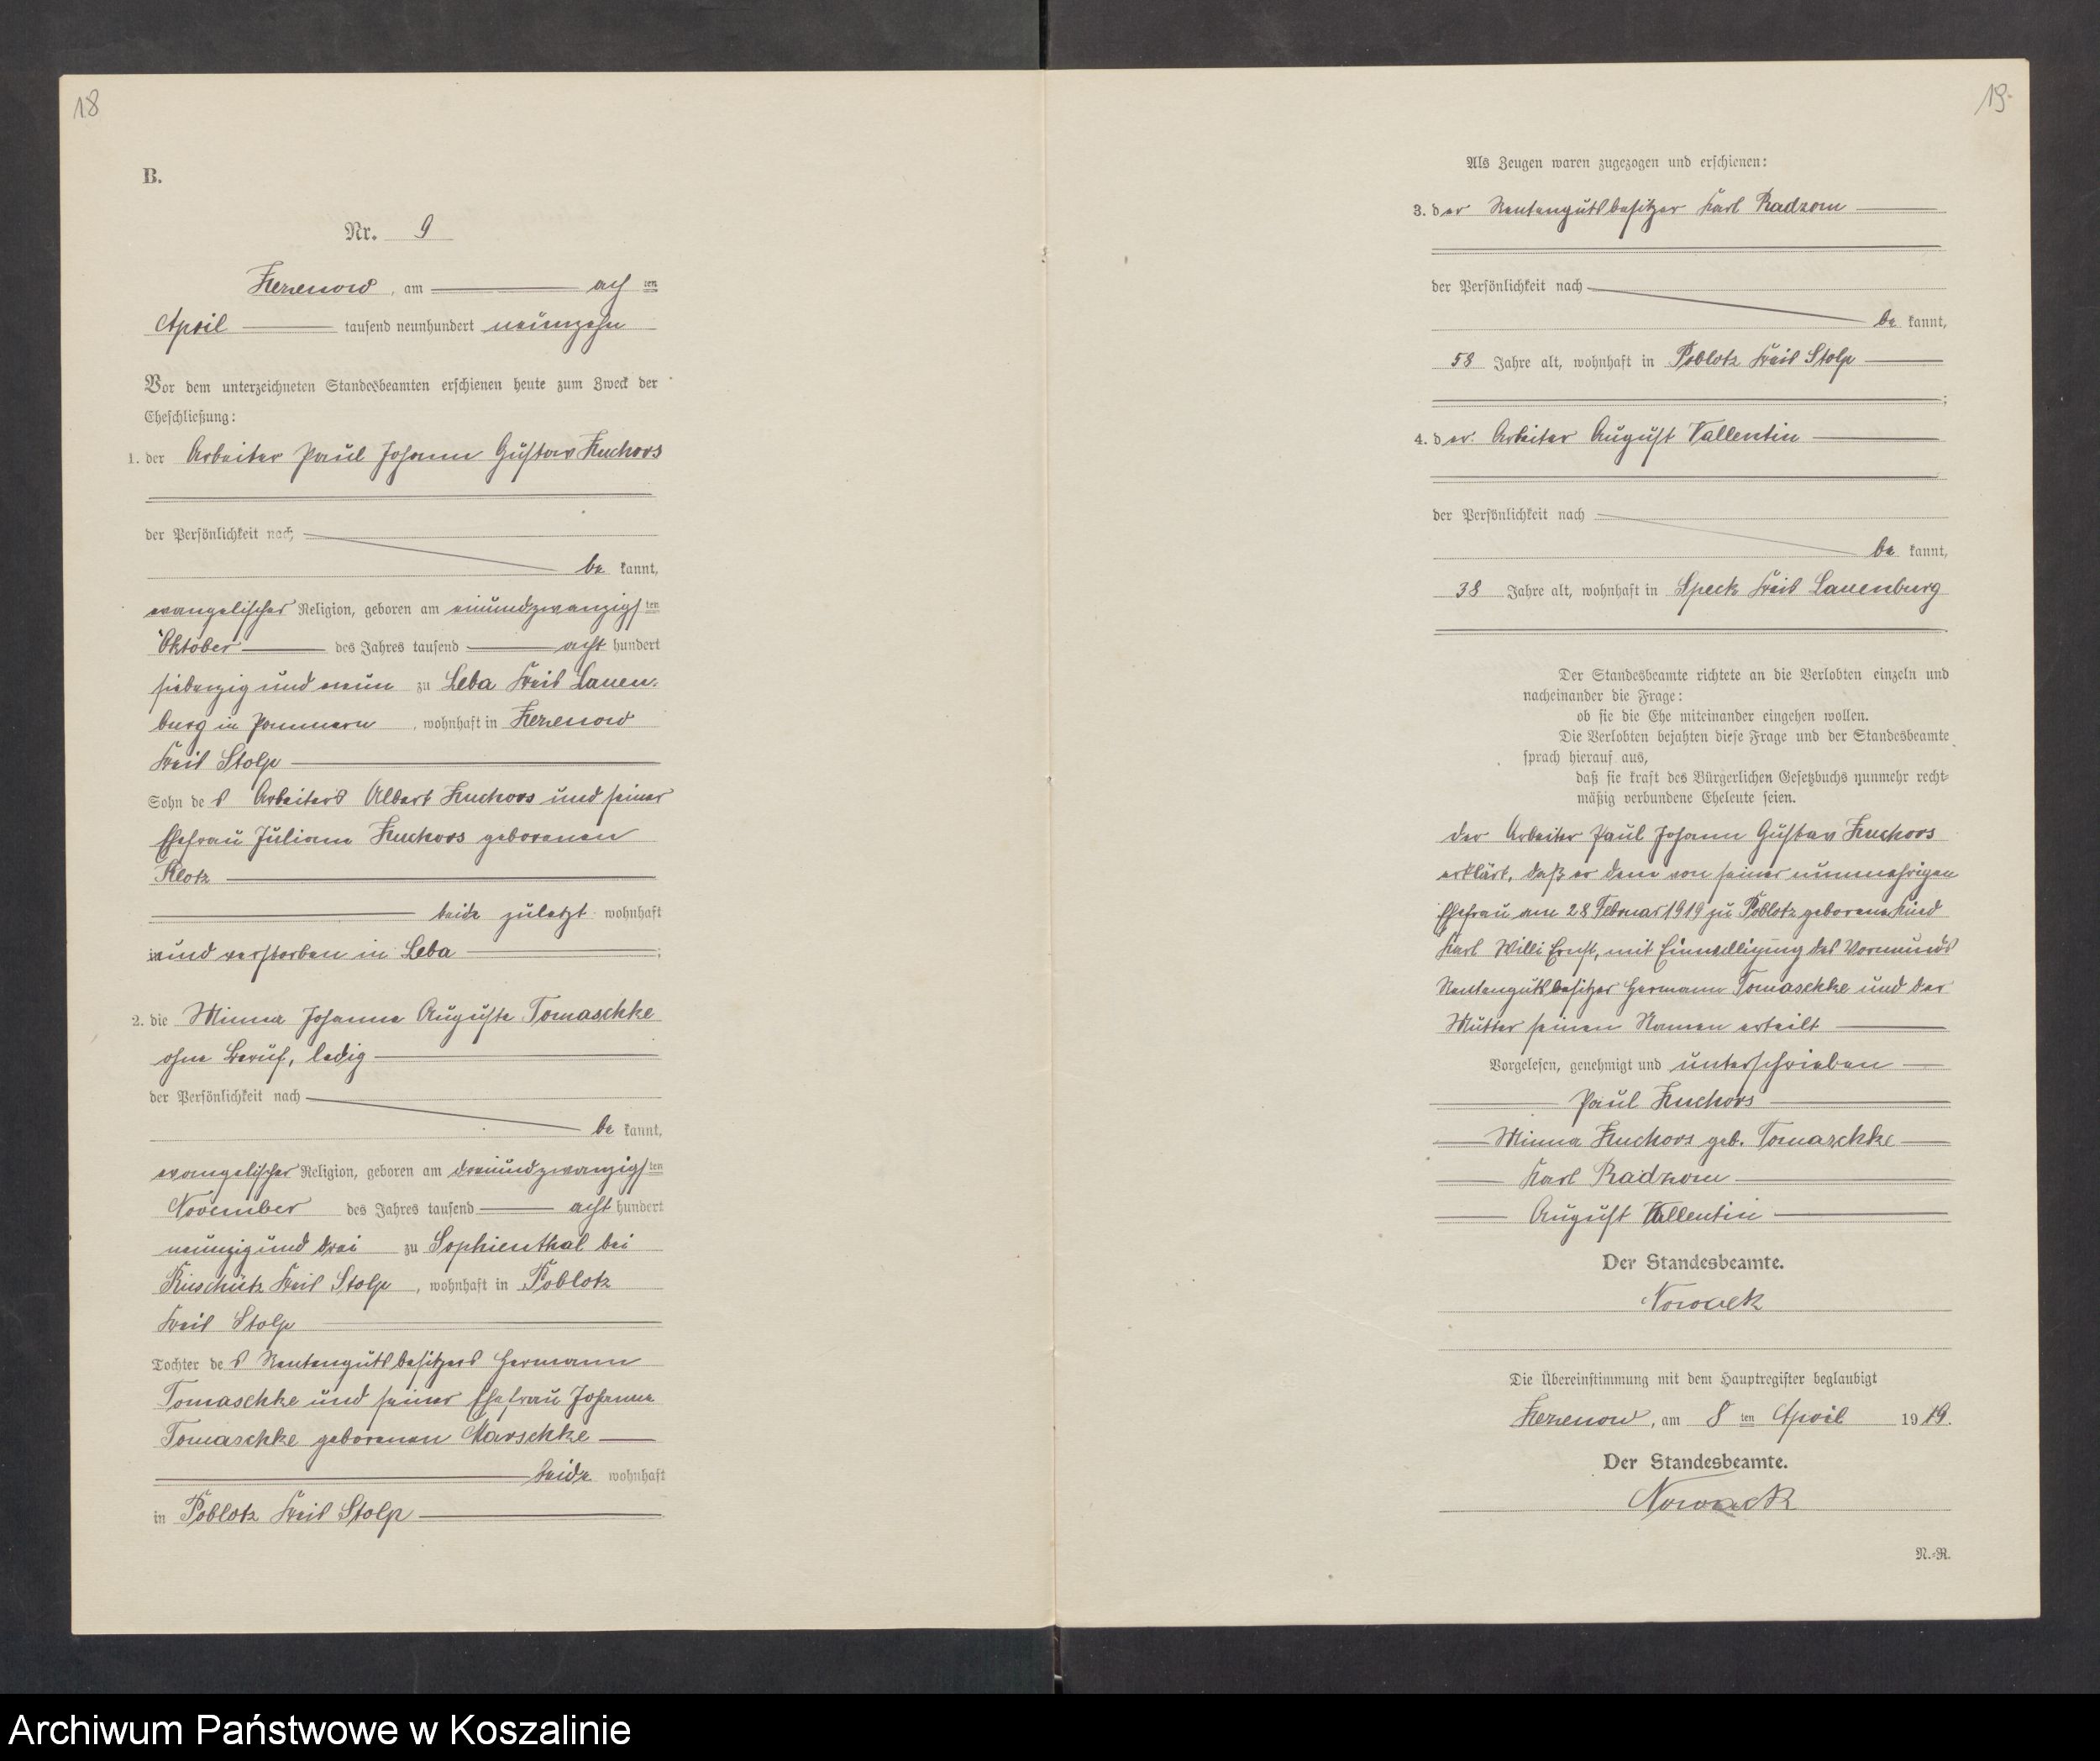 18
B.
Nr. 9
Zezenow, am ach ten
April tausend neunhundert neunzehn
Vor dem unterzeichneten Standesbeamten erschienen heute zum Zweck der
Eheschließung:
1. der Arbeiter Paul Johann Gustav Kuchors
der Persönlichkeit nach
be kannt,
evangelischer Religion, geboren am einundzwanzigs ten
Oktober des Jahres tausend acht hundert
siebenzig und neun zu Leba Kreis Lauen-
burg in Pommern, wohnhaft in Zezenow
Kreis Stolp
Sohn des Arbeiters Albert Kuchors und seiner
Ehefrau Juliane Kuchors geborenen
Klotz
beide zuletzt wohnhaft
und verstorben in Leba;
2. die Minna Johanna Auguste Tomaschke
ohne Beruf, ledig
der Persönlichkeit nach
be kannt,
evangelischer Religion, geboren am dreiundzwanzigs ten
November des Jahres tausend acht hundert
neunzig und drei zu Sophienthal bei
Kreis Stolp, wohnhaft in Poblotz
Kreis Stolp
Tochter des Rentengutsbesitzers Hermann
Tomaschke und seiner Ehefrau Johanna
Tomaschke geborenen Marschke
beide wohnhaft
in Poblotz Kreis Stolp
19.
Als Zeugen waren zugezogen und erschienen:
3. der Rentengutsbesitzer Karl Radzom
der Persönlichkeit nach
be kannt,
58 Jahre alt, wohnhaft in Poblotz Kreis Stolp
;
4. der Arbeiter August Vallentin
der Persönlichkeit nach
be kannt,
38 Jahre alt, wohnhaft in Speck Kreis Lauenburg
Der Standesbeamte richtete an die Verlobten einzeln und
nacheinander die Frage:
ob sie die Ehe miteinander eingehen wollen.
Die Verlobten bejahten diese Frage und der Standesbeamte
sprach hierauf aus,
daß sie kraft des Bürgerlichen Gesetzbuchs nunmehr recht-
mäßig verbundene Eheleute seien.
der Arbeiter Paul Johann Gustav Kuchors
erklärt, daß er dem von seiner nunmehrigen
Ehefrau am 28 Februar 1919 zu Poblotz geborene Kind
Karl Willi Ernst, mit Einwilligung des Vormunds
Rentengutsbesitzer Hermann Tomaschke und der
Mutter seinen Namen erteilt
Vorgelesen, genehmigt und unterschrieben
Paul Kuchors
Minna Kuchors geb. Tomaschke
Karl Radzom
August Vallentin
Der Standesbeamte.
Nowack
Die Übereinstimmung mit dem Hauptregister beglaubigt
Zezenow, am 8 ten April 1919.
Der Standesbeamte.
Nowack
N.-R.
Archiwum Państwowe w Koszalinie